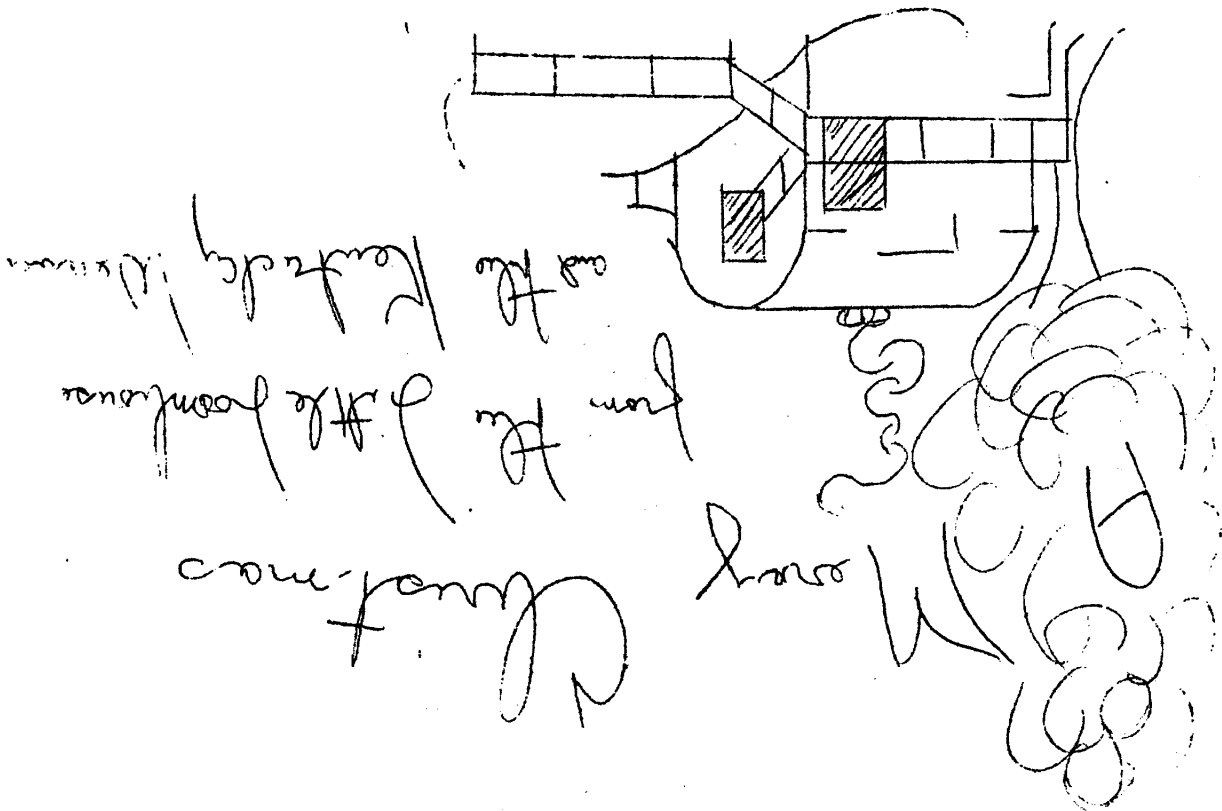 Merry Christmas
from the Little farmhouse
and the Kentucky